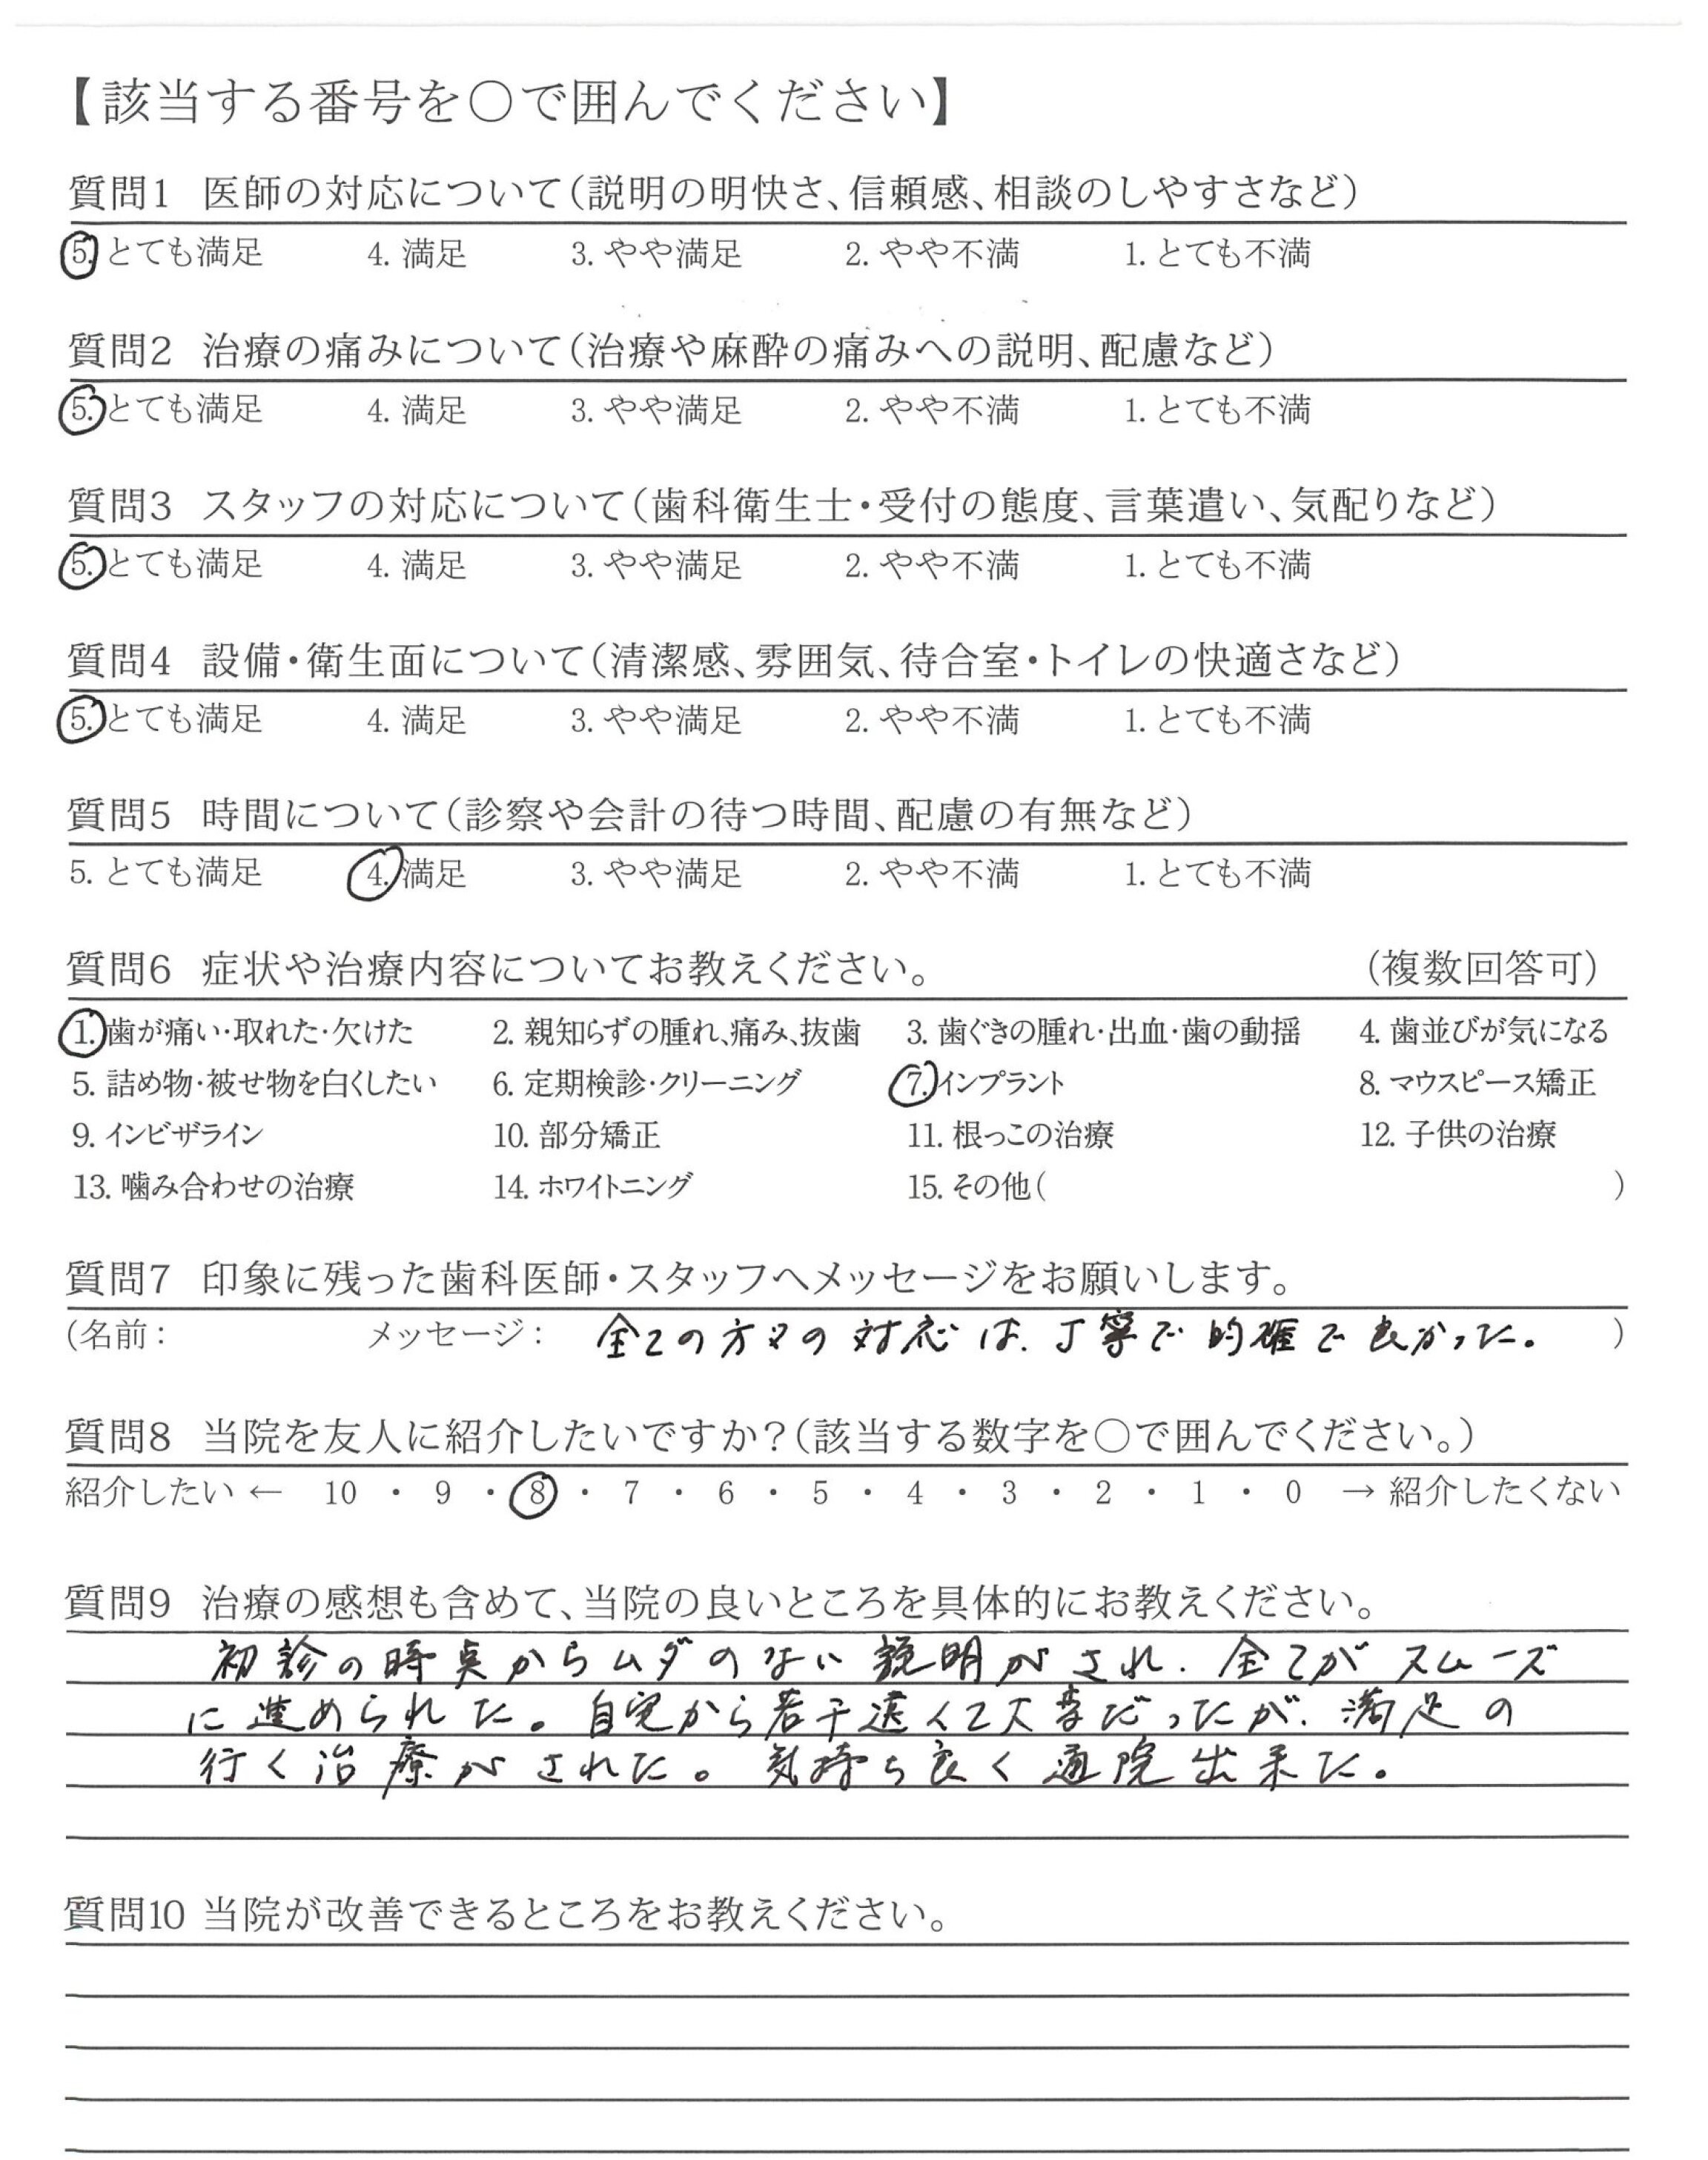 【該当する番号を○で囲んでください】
質問1 医師の対応について(説明の明快さ、信頼感、相談のしやすさなど)
5. とても満足 4. 満足 3. やや満足 2. やや不満 1. とても不満
質問2 治療の痛みについて(治療や麻酔の痛みへの説明、配慮など)
5. とても満足 4. 満足 3. やや満足 2. やや不満 1. とても不満
質問3 スタッフの対応について(歯科衛生士・受付の態度、言葉遣い、気配りなど)
5. とても満足 4. 満足 3. やや満足 2. やや不満 1. とても不満
質問4 設備・衛生面について(清潔感、雰囲気、待合室・トイレの快適さなど)
5. とても満足 4. 満足 3. やや満足 2. やや不満 1. とても不満
質問5 時間について(診察や会計の待つ時間、配慮の有無など)
5. とても満足 4. 満足 3. やや満足 2. やや不満 1. とても不満
質問6 症状や治療内容についてお教えください。 (複数回答可)
1. 歯が痛い・取れた・欠けた 2. 親知らずの腫れ、痛み、抜歯 3. 歯ぐきの腫れ・出血・歯の動揺 4. 歯並びが気になる
5. 詰め物・被せ物を白くしたい 6. 定期検診・クリーニング 7. インプラント 8. マウスピース矯正
9. インビザライン 10. 部分矯正 11. 根っこの治療 12. 子供の治療
13. 噛み合わせの治療 14. ホワイトニング 15. その他( )
質問7 印象に残った歯科医師・スタッフへメッセージをお願いします。
(名前: メッセージ: 全ての方々の対応は、丁寧で的確で良かった。 )
質問8 当院を友人に紹介したいですか?(該当する数字を○で囲んでください。)
紹介したい ← 10 ・ 9 ・ 8 ・ 7 ・ 6 ・ 5 ・ 4 ・ 3 ・ 2 ・ 1 ・ 0 → 紹介したくない
質問9 治療の感想も含めて、当院の良いところを具体的にお教えください。
初診の時点からムダのない説明がされ、全てがスムーズ
に進められた。自宅から若干遠くて大変だったが、満足の
行く治療がされた。気持ち良く通院出来た。
質問10 当院が改善できるところをお教えください。